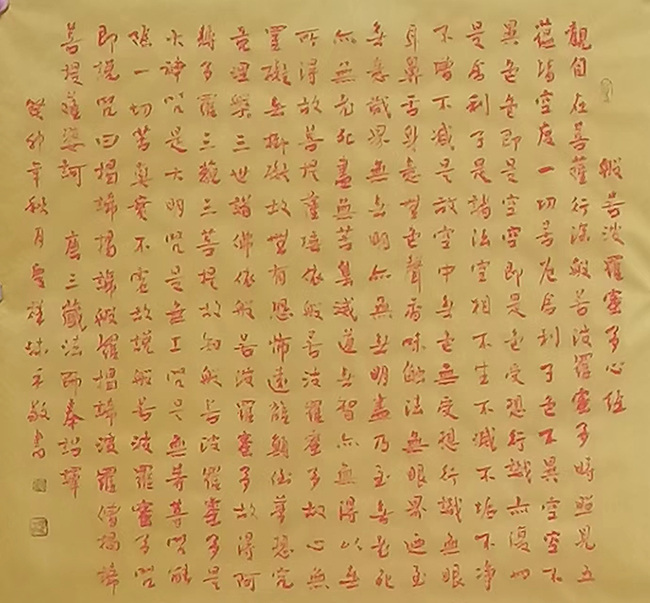 般若波羅蜜多心經
觀自在菩薩行深般若波羅蜜多時照見五
蘊皆空度一切苦厄舍利子色不異空空不
異色色即是空空即是色受想行識亦復如
是舍利子是諸法空相不生不滅不垢不淨
不增不減是故空中無色無受想行識無眼
耳鼻舌身意無色聲香味觸法無眼界乃至
無意識界無無明亦無無明盡乃至無老死
亦無老死盡無苦集滅道無智亦無得以無
所得故菩提薩埵依般若波羅蜜多故心無
罣礙無掛礙故無有恐怖遠離顛倒夢想究
竟涅槃三世諸佛依般若波羅蜜多故得阿
耨多羅三藐三菩提故知般若波羅蜜多是
大神咒是大明咒是無上咒是無等等咒能
除一切苦真實不虛故說般若波羅蜜多咒
即說咒曰揭諦揭諦般羅揭諦波羅僧揭諦
菩提薩婆訶 唐三藏法師奉詔譯
癸卯年秋月敬書